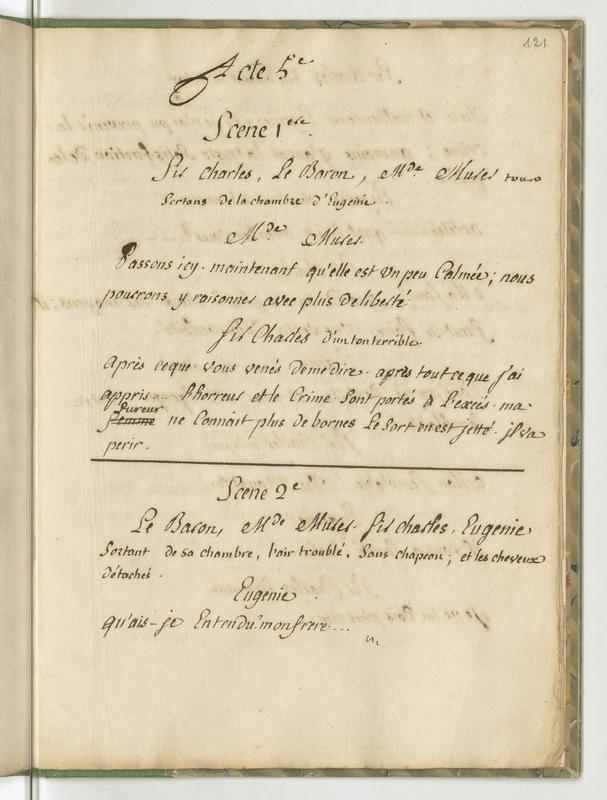 121
Acte 5e
Scene 1ere.
Sir Charles, Le Baron, Mde Murer tous
Sortans de la chambre d'Eugenie.
Mde Murer.
Passons icy. maintenant qu'elle est un peu Calmée; nous
pourrons y raisonner avec plus de liberté.
Sir Charles d'un ton terrible.
Après ceque vous venés deme dire. après tout ce que j'ai
appris... L'horreur et le Crime Sont portés à L'excés. ma
fureur
femme ne Connait plus de bornes Le Sort en est jetté. il va
perir.
Scene 2e
Le Baron, Mde Murer. Sir charles, Eugenie
Sortant de sa chambre, l'air troublé, Sans chapeau; et les cheveux
détachés.
Eugenie.
qu'ais-je Entendu? mon frere...